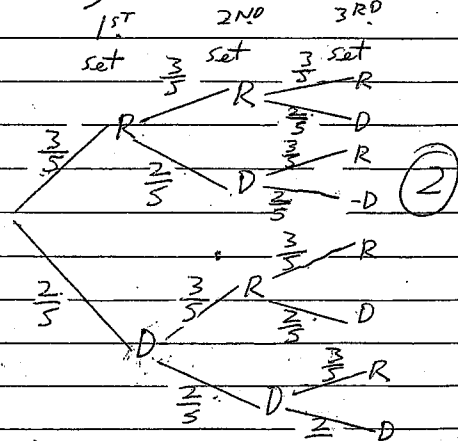 1ST 2ND 3RD
set set set
3/5 R 3/5 R 3/5 R
2/5 D
2/5 D 3/5 R
2/5 D
2
2/5 D 3/5 R 3/5 R
2/5 D
2/5 D 3/5 R
2 D